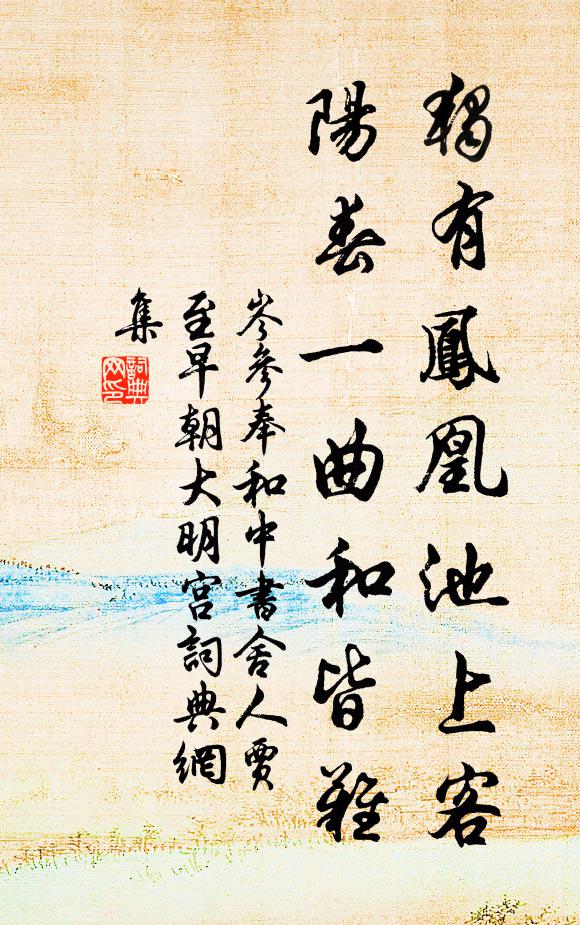 獨有鳳凰池上客
陽春一曲和皆難
岑參奉和中書舍人賈
至早朝大明宮詞典網
集
詞典
网印